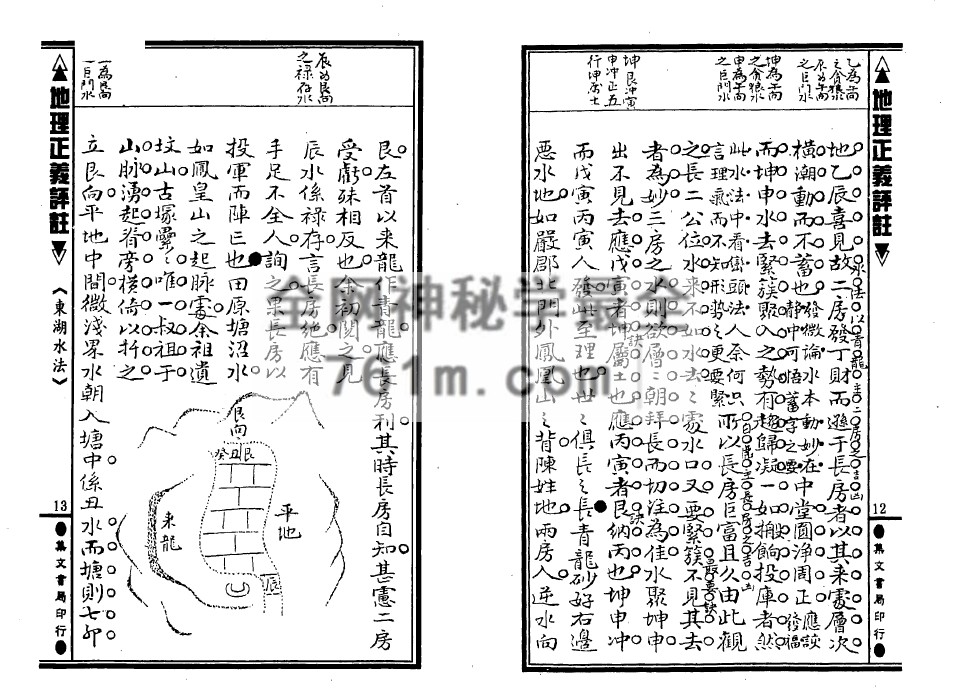 地理正義評註
12
集文書局印行
乙為午向
之貪狼水
辰為午向
之巨門水
坤為午向
之貪狼水
申為午向
之巨門水
坤艮沖寅
申沖正五
行坤屬土
地乙辰喜見故二房發丁財而遜于長房者以其来處層次
水法以青龍主二房之吉凶
橫潮動而不蓄也發微論水本動妙在中堂圓淨周正應誤
靜中可悟蓄字之要
發福
而坤申水去緊簇歸入之勢有趨歸凝一如搬餉投庫者然
此水法中看巒頭法人奈何只所以長房巨富且久由此觀
言理氣而不知形勢之更要緊
白虎主長房之吉凶
之長二公位水来不如水去水去之處水口又要緊簇不見其去
者為妙三房之水則欲層層朝拜長而切注為佳水聚坤申
出不見去應戊寅者坤屬土也應丙寅者艮納丙也坤申冲
而戊寅丙寅人發此至理也世之俱長之長青龍砂好右邊
惡水地如嚴郡北門外鳳凰山之背陳姓地兩房入逆水向
地理正義評註
《東湖水法》
13
集文書局印行
辰為艮向
之禄存水
一為艮向
一巨門水
艮左首以来龍作青龍應長房利其時長房自知甚憲二房
受虧殊相反也余初閱之見
辰水係禄存言長房絶應有
手足不全人詢之果長房以
投軍而陣亡也田原塘沼水
如鳳皇山之起脉處余祖遺
坟山古塚纍纍唯一叔祖于
山脉湧起脊旁橫倚以扦之
立艮向平地中間微淺界水朝入塘中係丑水而塘則七卯
艮向
癸丑艮
平地
来龍
辰
全网神秘学最全
761m.com